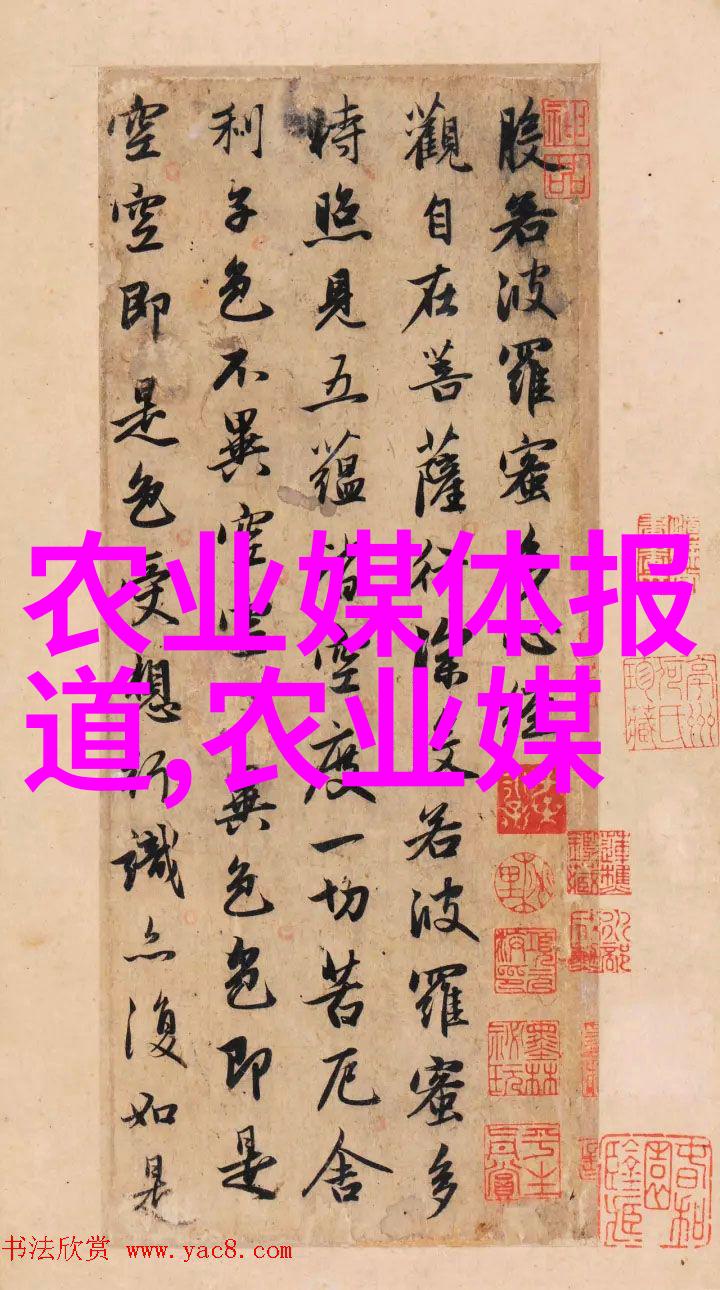 般若波羅蜜多心經
觀自在菩薩行深般若波羅蜜多
時照見五蘊皆空度一切苦厄舍
利子色不異空空不異色色即是
空空即是色受想行識亦復如是
农业媒体报
道,农业媒
神品
墨林
祕玩
书法欣赏 www.yac8.com